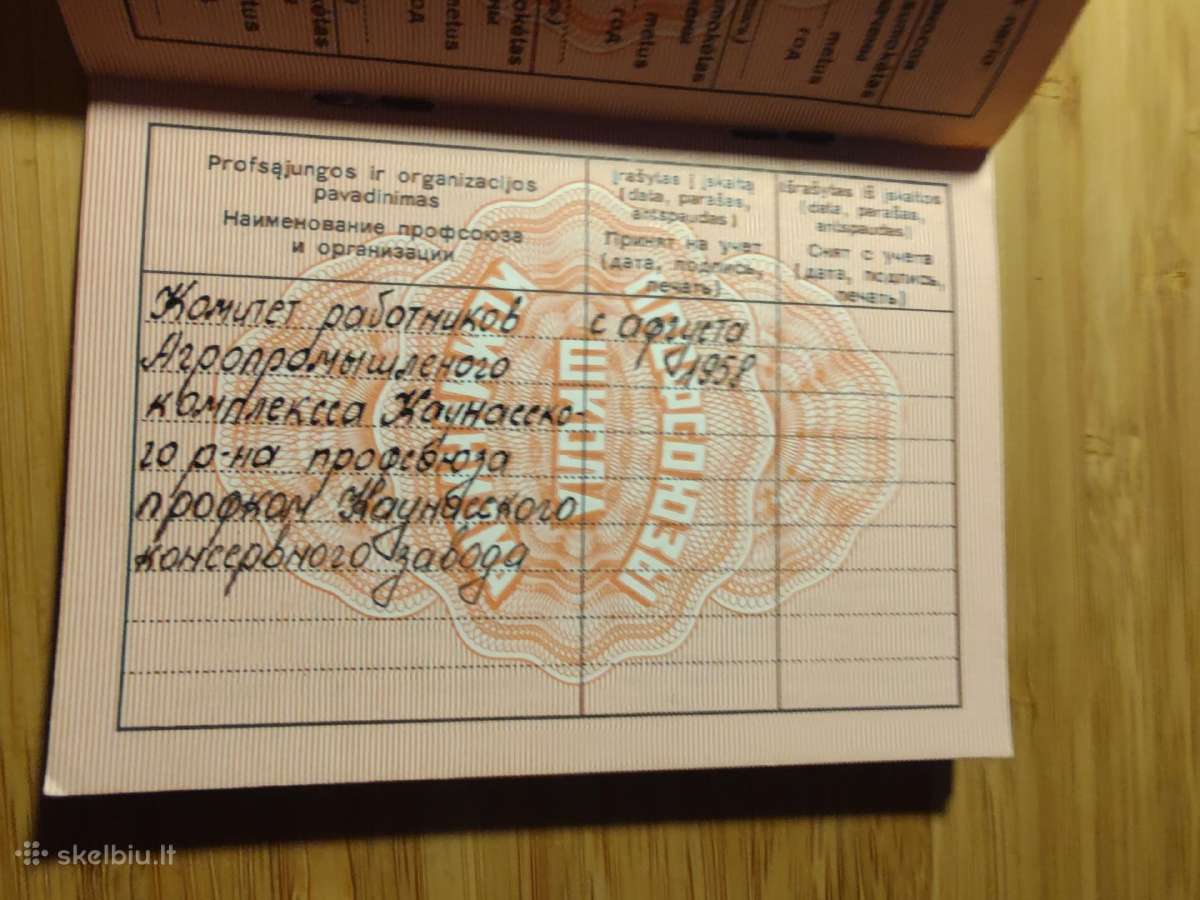 metus
год
metus
год
metus
год
Profsąjungos ir organizacijos
pavadinimas
Наименование профсоюза
и организации
Įrašytas į įskaitą
(data, parašas,
antspaudas)
Принят на учет
(дата, подпись,
печать)
Išrašytas iš įskaitos
(data, parašas,
antspaudas)
Снят с учета
(дата, подпись,
печать)
Комитет работников
Агропромышленого
комплексса Каунасско-
го р-на профсоюза
профком Каунасского
консервного завода
с августа
1958
ШКОЛА
ПРОФСОЮЗЫ
skelbiu.lt